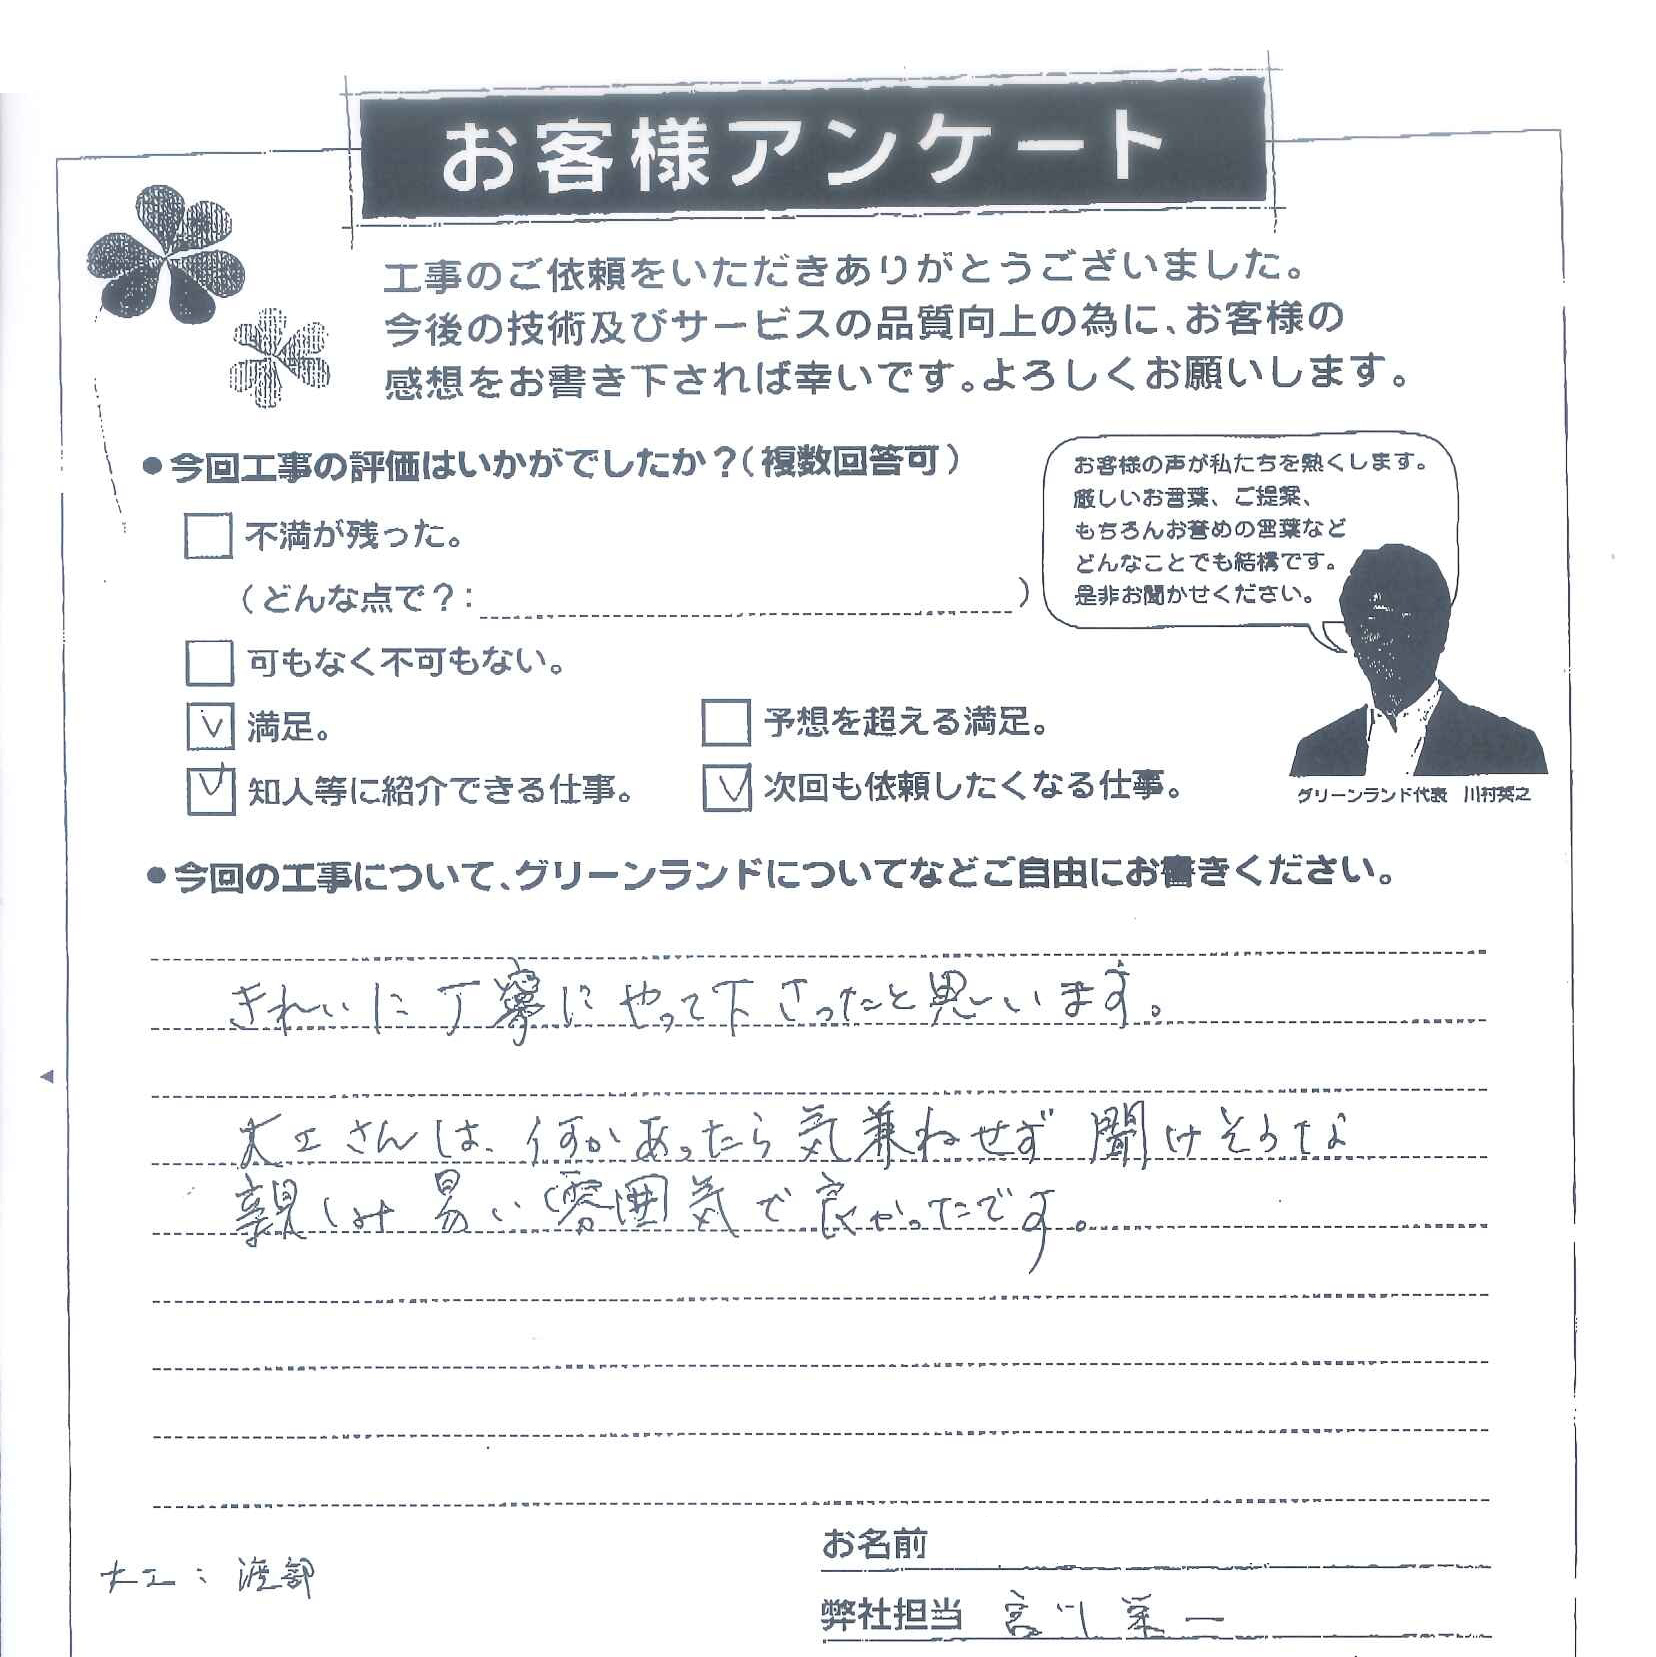 お客様アンケート
工事のご依頼をいただきありがとうございました。
今後の技術及びサービスの品質向上の為に、お客様の
感想をお書き下されば幸いです。よろしくお願いします。
●今回工事の評価はいかがでしたか？（複数回答可）
不満が残った。
（どんな点で？： ）
可もなく不可もない。
満足。
予想を超える満足。
知人等に紹介できる仕事。
次回も依頼したくなる仕事。
お客様の声が私たちを熱くします。
厳しいお言葉、ご提案、
もちろんお誉めの言葉など
どんなことでも結構です。
是非お聞かせください。
グリーンランド代表 川村英之
●今回の工事について、グリーンランドについてなどご自由にお書きください。
きれいに丁寧にやって下さったと思います。
大工さんは、何かあったら気兼ねせず聞けそうな
親しみ易い雰囲気で良かったです。
お名前
大工：渡部
弊社担当 宮川